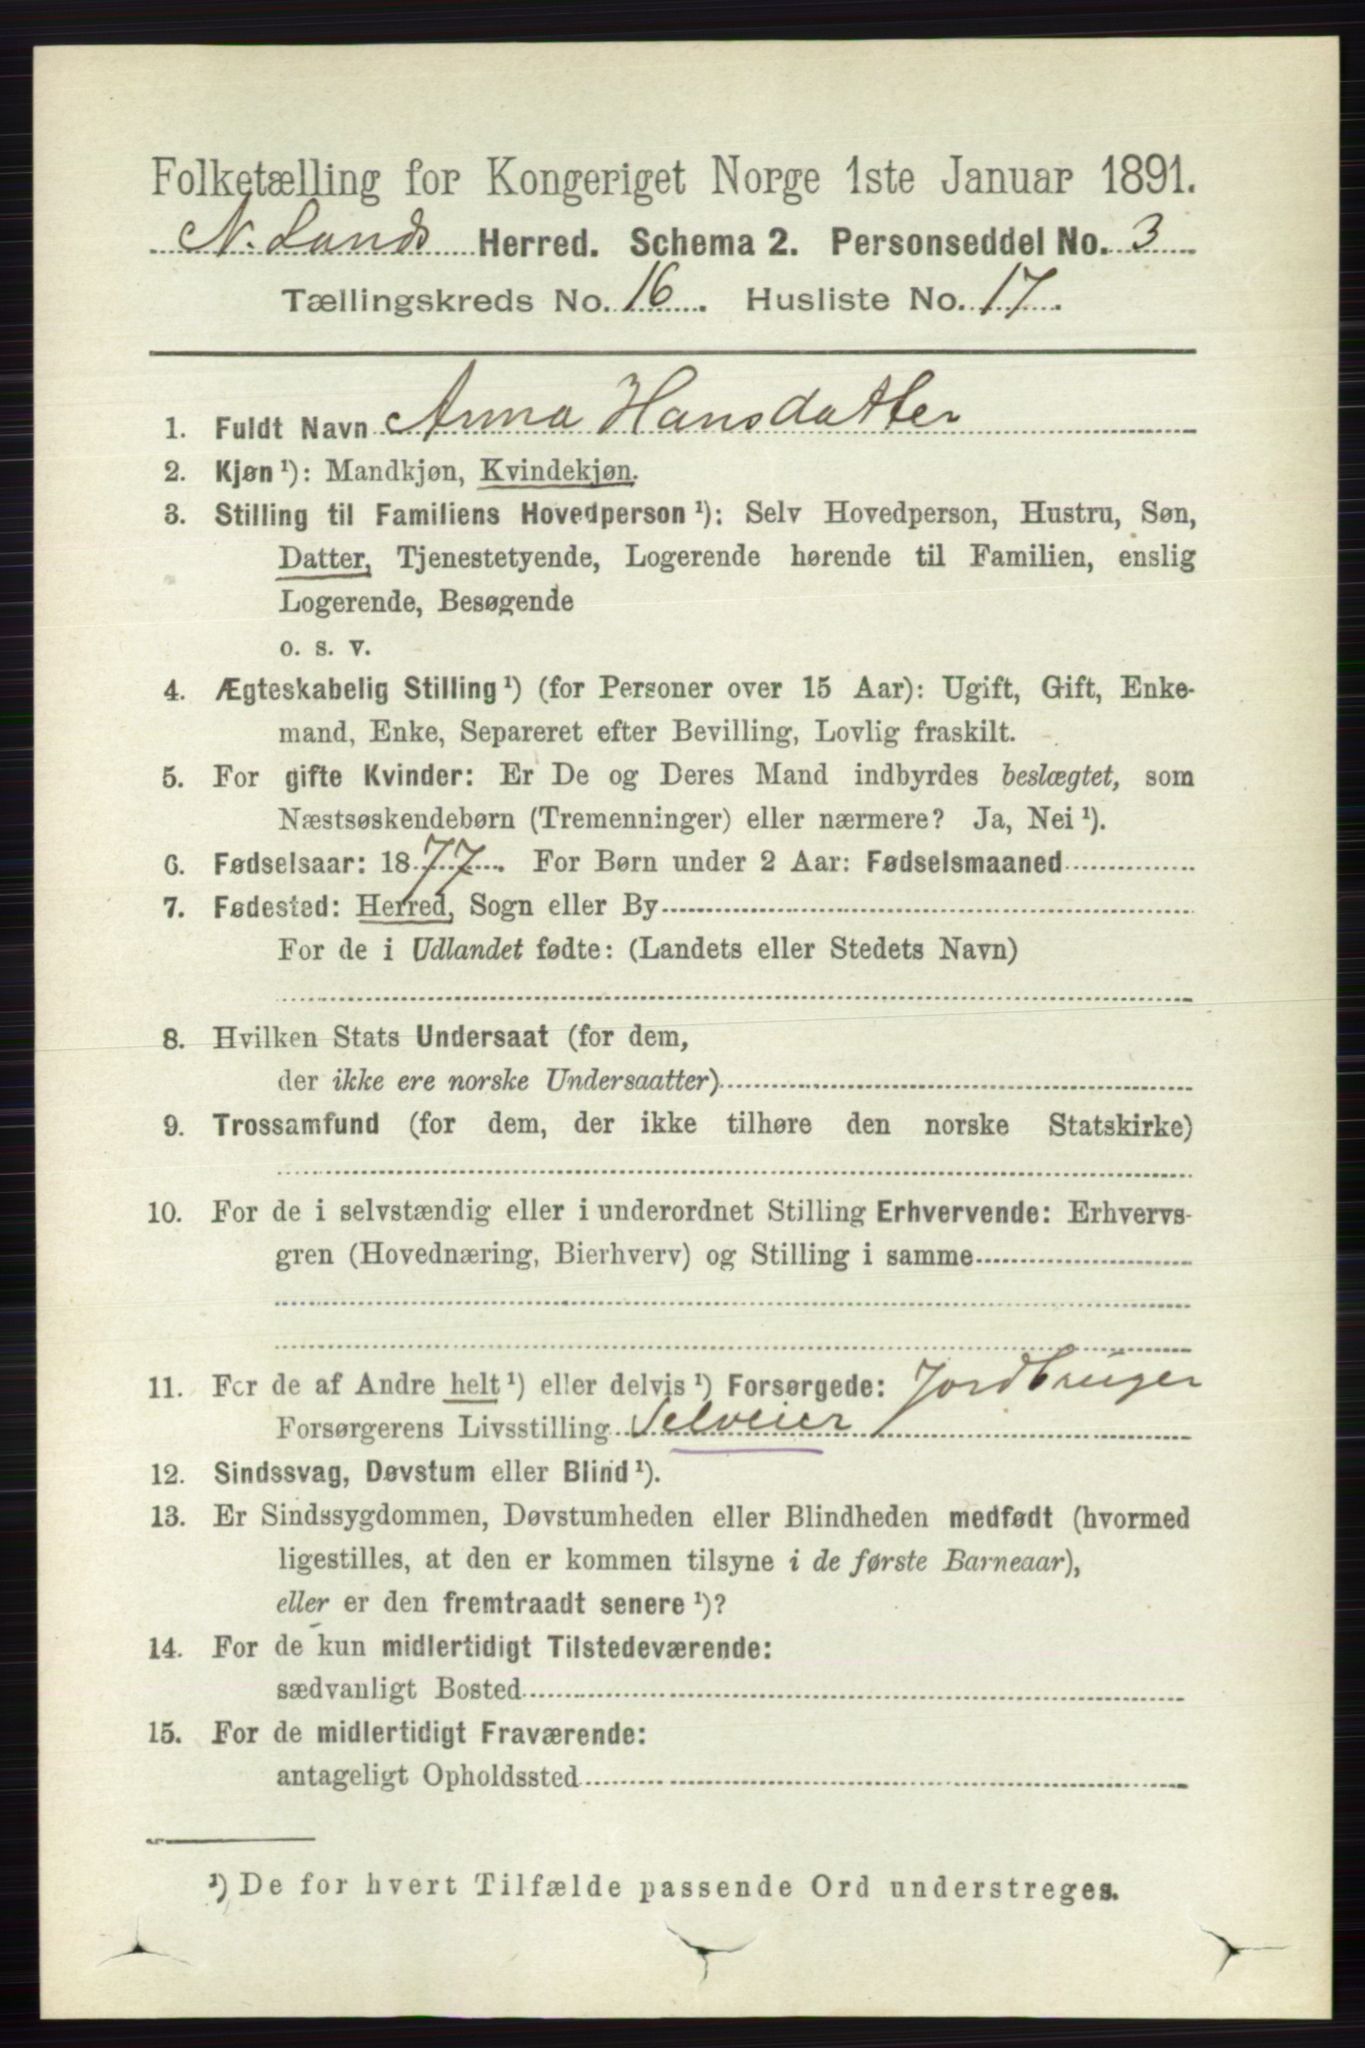 Folketælling for Kongeriget Norge 1ste Januar 1891.
N. Lands Herred. Schema 2. Personseddel No. 3
Tællingskreds No. 16. Husliste No. 17.
1. Fuldt Navn Anna Hansdatter
2. Kjøn ¹): Mandkjøn, Kvindekjøn.
3. Stilling til Familiens Hovedperson ¹): Selv Hovedperson, Hustru, Søn,
Datter, Tjenestetyende, Logerende hørende til Familien, enslig
Logerende, Besøgende
o. s. v.
4. Ægteskabelig Stilling ¹) (for Personer over 15 Aar): Ugift, Gift, Enke-
mand, Enke, Separeret efter Bevilling, Lovlig fraskilt.
5. For gifte Kvinder: Er De og Deres Mand indbyrdes beslægtet, som
Næstsøskendebørn (Tremenninger) eller nærmere? Ja, Nei ¹).
6. Fødselsaar: 1877. For Børn under 2 Aar: Fødselsmaaned
7. Fødested: Herred, Sogn eller By
For de i Udlandet fødte: (Landets eller Stedets Navn)
8. Hvilken Stats Undersaat (for dem,
der ikke ere norske Undersaatter)
9. Trossamfund (for dem, der ikke tilhøre den norske Statskirke)
10. For de i selvstændig eller i underordnet Stilling Erhvervende: Erhvervs-
gren (Hovednæring, Bierhverv) og Stilling i samme
11. For de af Andre helt ¹) eller delvis ¹) Forsørgede: Jordbruger
Forsørgerens Livsstilling Selveier
12. Sindssvag, Døvstum eller Blind ¹).
13. Er Sindssygdommen, Døvstumheden eller Blindheden medfødt (hvormed
ligestilles, at den er kommen tilsyne i de første Barneaar),
eller er den fremtraadt senere ¹)?
14. For de kun midlertidigt Tilstedeværende:
sædvanligt Bosted
15. For de midlertidigt Fraværende:
antageligt Opholdssted
¹) De for hvert Tilfælde passende Ord understreges.